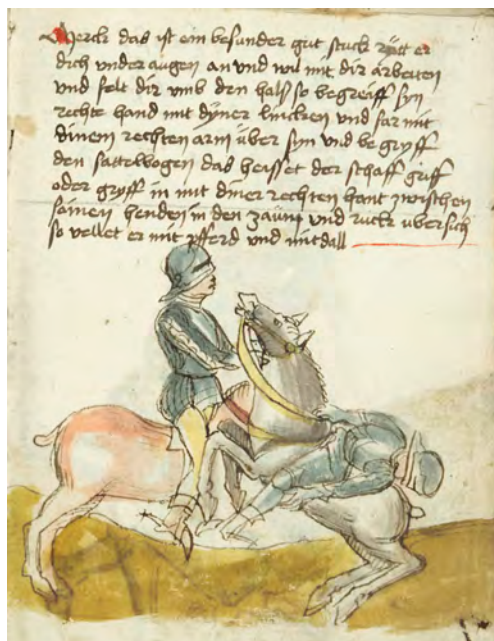 Merck das ist ein besunder gut stuck rytt er
dich under augen an und wil mit dir arbeiten
und felt dir umb den hals so begreiff syn
rechte hand mit dyner lincken und far mit
dinem rechten arm über syn und begryff
den sattelbogen das heisset der schaff griff
oder gryff in mit diner rechten hant zwischen
sainen henden in den zaům und ruck ubersich
so vellet er mit pfferd und mitdall